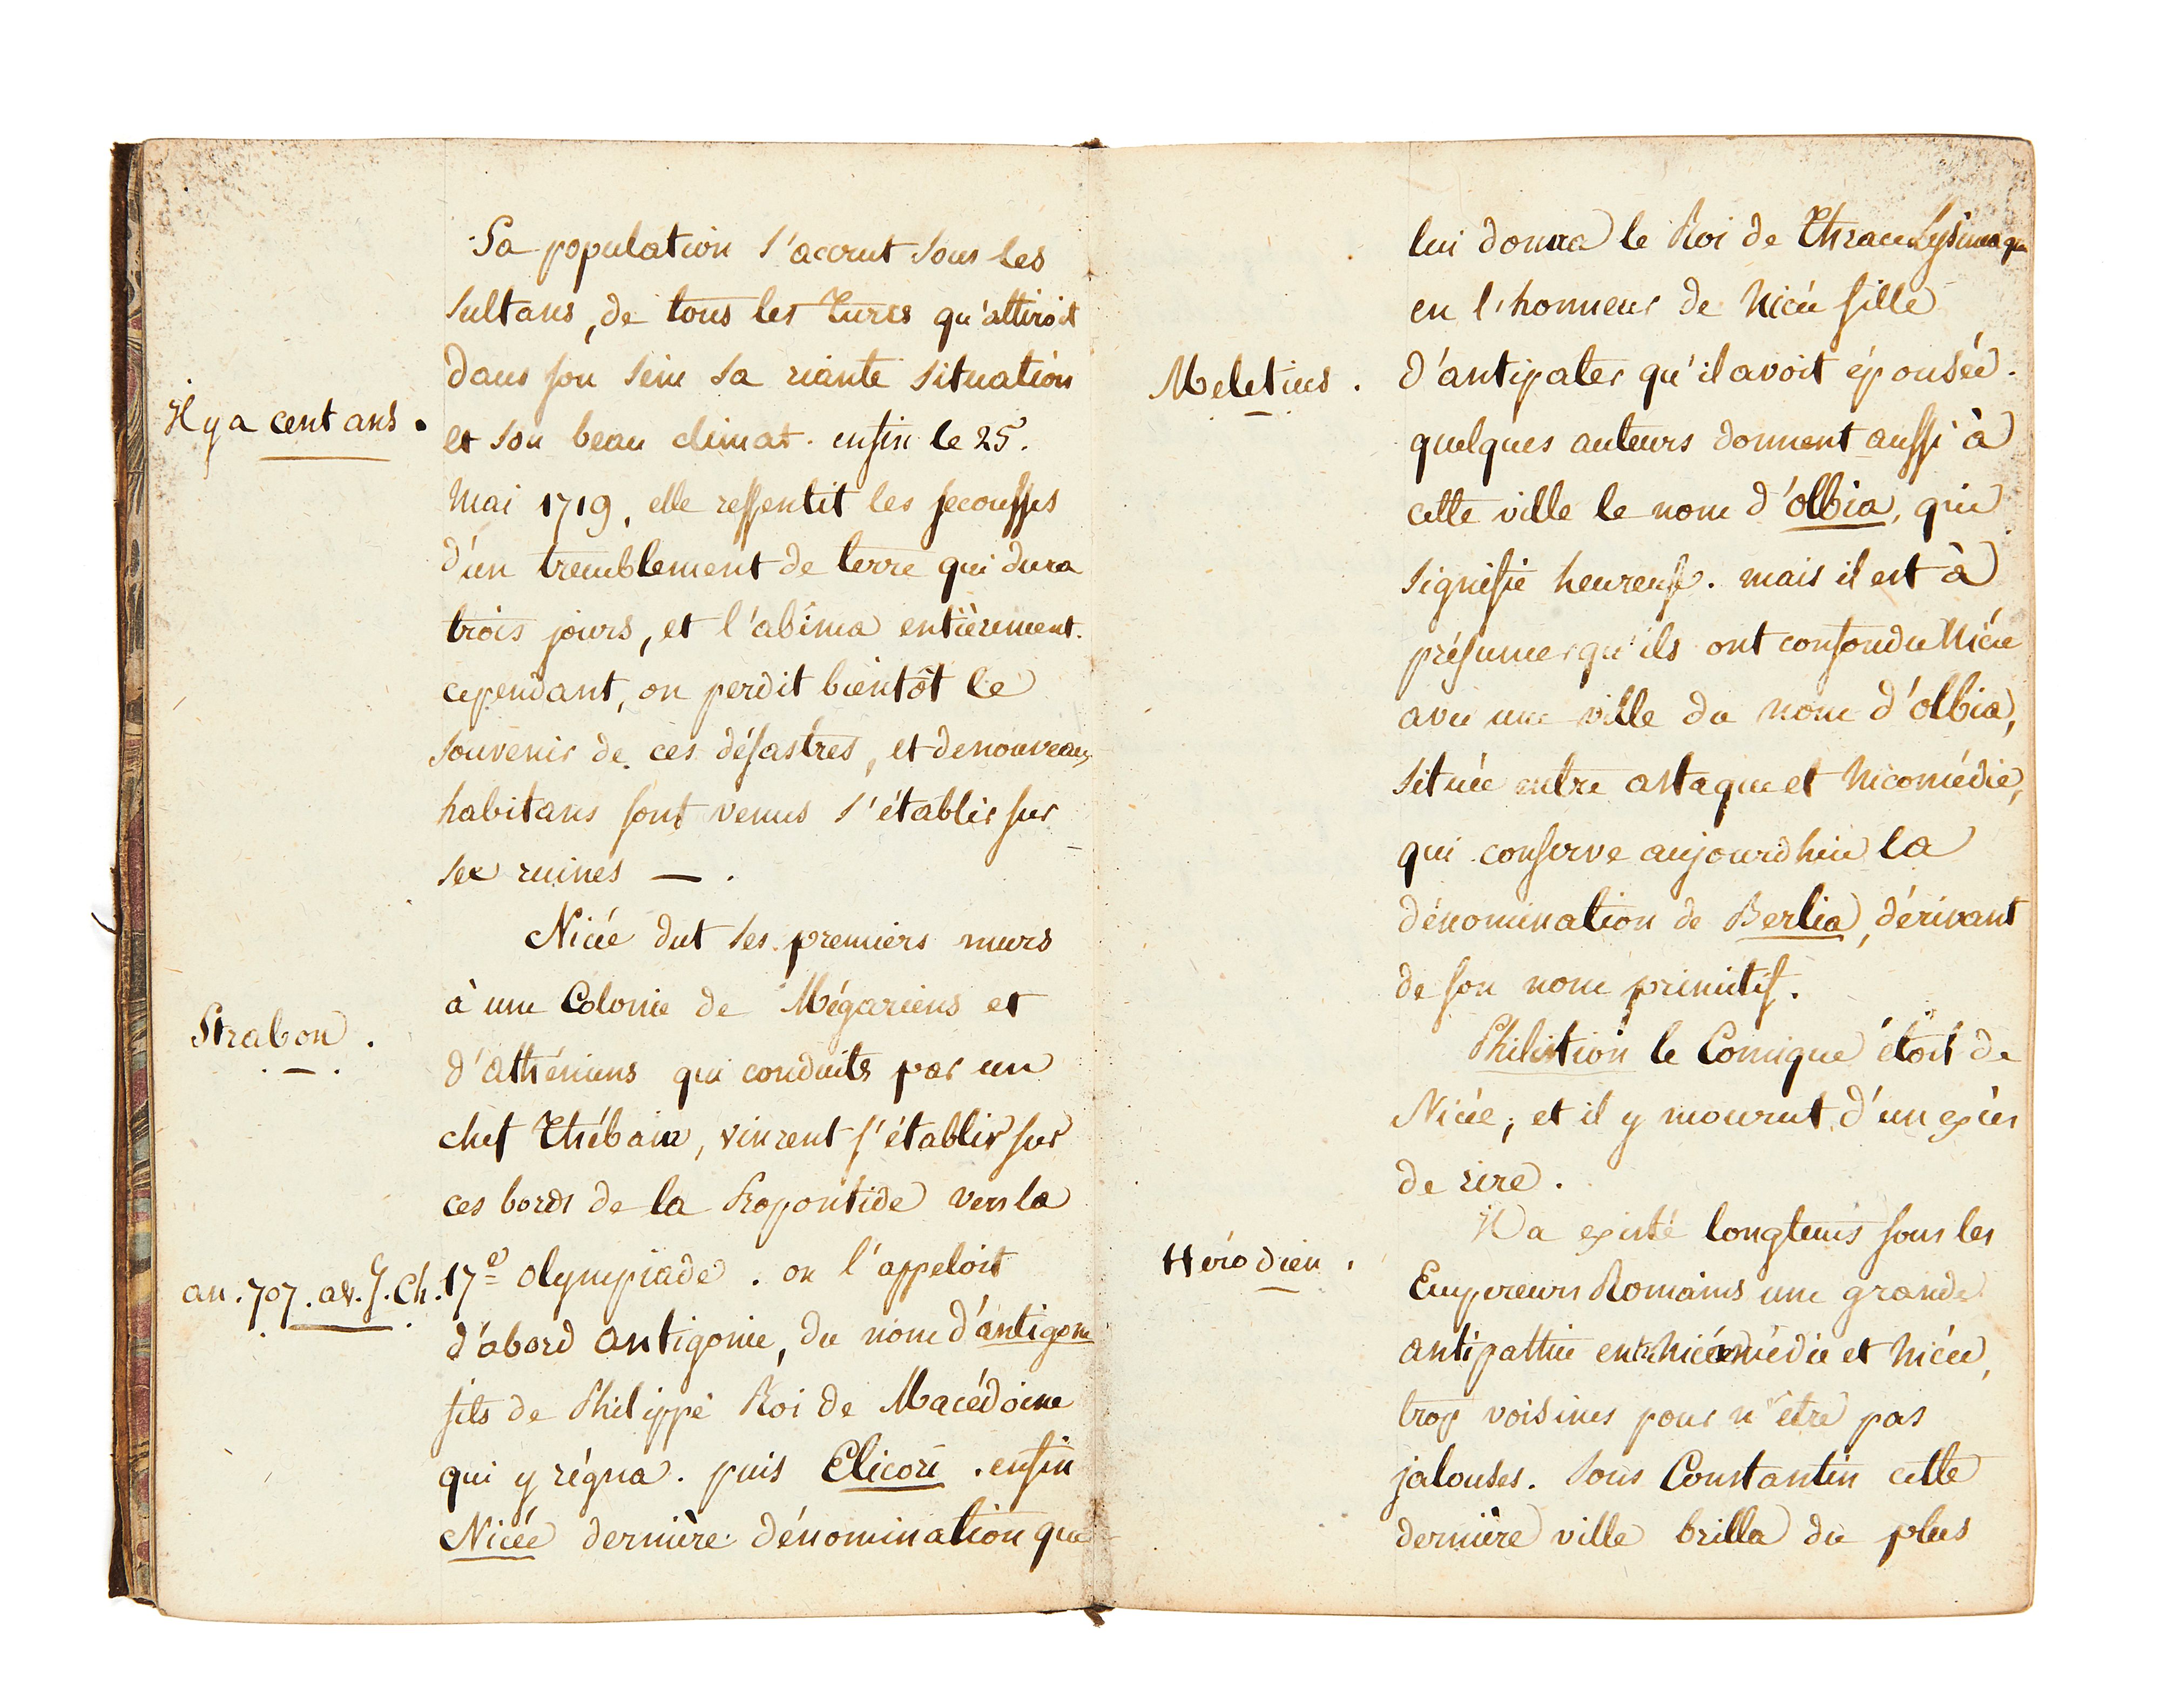 Sa population s'accrut sous les
sultans, de tous les Turcs qu'attiroit
dans son sein sa riante situation
Il y a cent ans.
et son beau climat. enfin le 25.
Mai 1719, elle ressentit les secousses
d'un tremblement de terre qui dura
trois jours, et l'abîma entièrement.
cependant, on perdit bientôt le
souvenir de ces désastres, et de nouveaux
habitans sont venus s'établir sur
ses ruines — .
Nicée dut ses premiers murs
à une Colonie de Mégariens et
Strabon.
d'athéniens qui conduits par un
chef Thébain, vinrent s'établir sur
ces bords de la Propontide vers la
an. 707. av. J. Ch.
17e olympiade. on l'appeloit
d'abord antigonie, du nom d'antigone
fils de Philippe Roi de Macédoine
qui y régna. puis Elicori. enfin
Nicée dernière dénomination que
lui donna le Roi de Thrace Lysimaque
en l'honneur de Nicée fille
Meletius.
d'antipater qu'il avoit épousée.
quelques auteurs donnent aussi à
cette ville le nom d'olbia, qui
signifie heureuse. mais il est à
présumer qu'ils ont confondu Nicée
avec une ville du nom d'olbia,
située entre astaque et Nicomédie,
qui conserve aujourdhui la
dénomination de Berlia, dérivant
de son nom primitif.
Philistion le Comique étoit de
Nicée; et il y mourut d'un excès
de rire.
Il a existé longtems sous les
Hérodien.
Empereurs Romains une grande
antipathie entre Nicomédie et Nicée,
trop voisines pour n'être pas
jalouses. sous Constantin cette
dernière ville brilla du plus